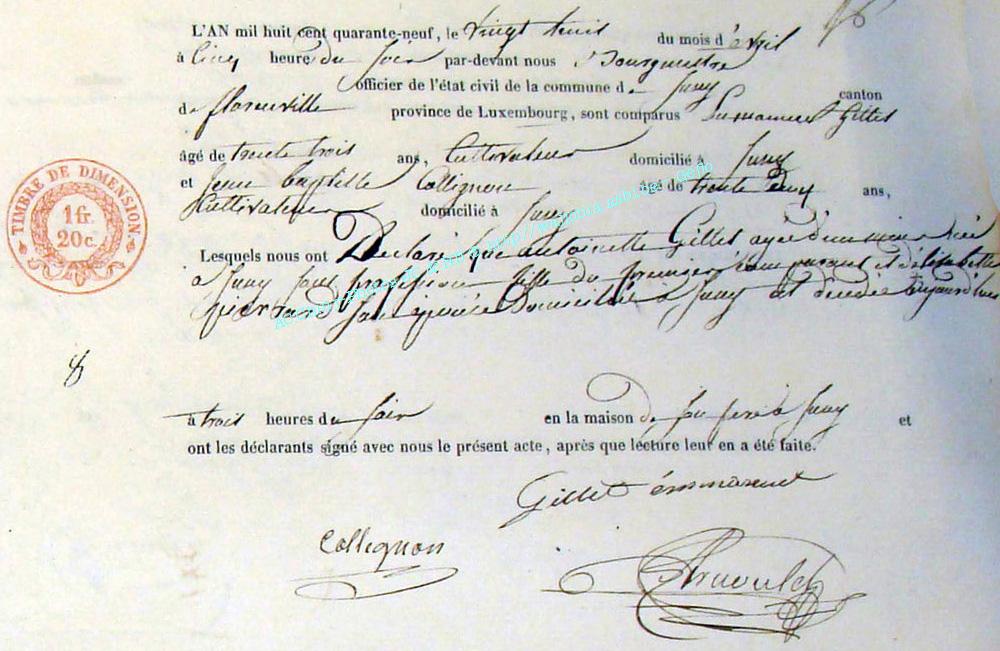 L'AN mil huit cent quarante-neuf, le vingt trois du mois d'avril
à cinq heure du soir par-devant nous Bourgmestre
officier de l'état civil de la commune de Juny canton
de florenville province de Luxembourg, sont comparus Emmanuel Gillet
âgé de trente trois ans, Cultivateur domicilié à Juny
et Jean Baptiste Collignon âgé de trente deux ans,
Cultivateur domicilié à Juny
Lesquels nous ont Déclaré que antoinette Gillet
à Juny sans profession fille du premier comparant et de
domiciliée à Juny est décédée aujourd'hui
8
à trois heures du soir en la maison de son père à Juny et
ont les déclarants signé avec nous le présent acte, après que lecture leur en a été faite.
Gillet émmanuel
Collignon
TIMBRE DE DIMENSION
1 fr.
20 c.